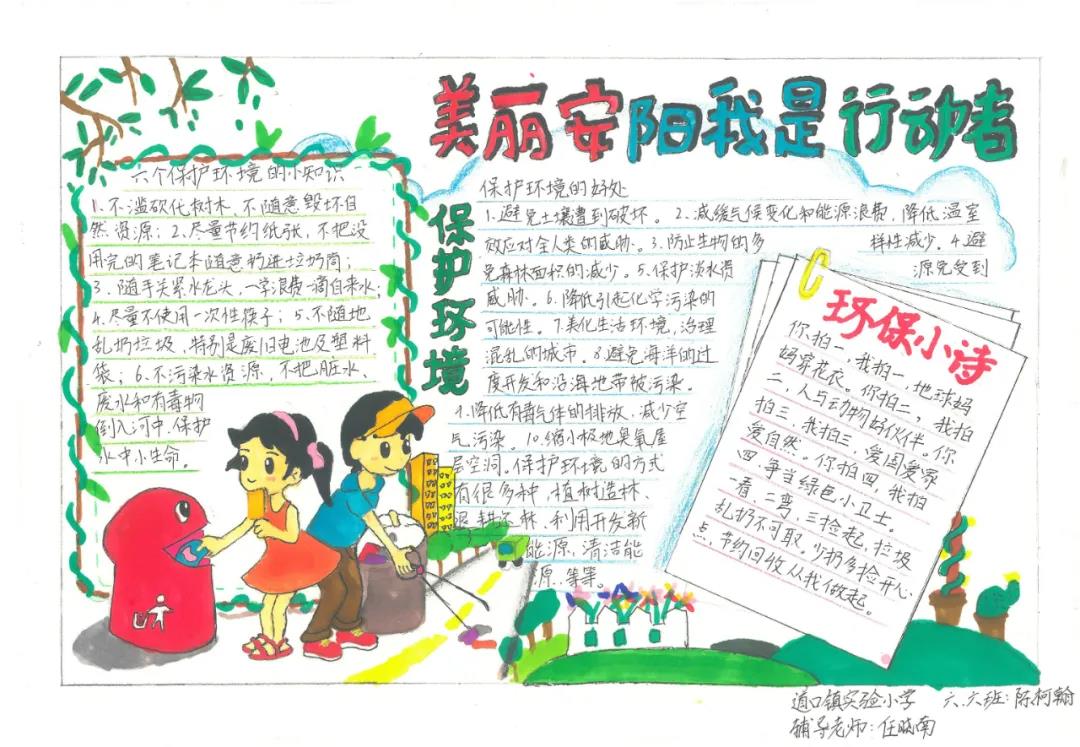 美丽安阳我是行动者
六个保护环境的小知识
1.不滥砍伐树木,不随意毁坏自
然资源;2.尽量节约纸张,不把没
用完的笔记本随意扔进垃圾筒;
3.随手关紧水龙头,一字浪费一滴自来水;
4.尽量不使用一次性筷子;5.不随地
乱扔垃圾,特别是废旧电池及塑料
袋;6.不污染水资源,不把脏水、
废水和有毒物
倒入河中,保护
水中小生命。
保护环境
保护环境的好处
1.避免土壤遭到破坏。2.减缓气候变化和能源浪费,降低温室
效应对全人类的威胁。3.防止生物的多样性减少。4.避
免森林面积的减少。5.保护淡水资源免受到
威胁。6.降低引起化学污染的
可能性。7.美化生活环境,治理
混乱的城市。8.避免海洋的过
度开发和沿海地带被污染。
9.降低有毒气体的排放,减少空
气污染。10.缩小极地臭氧层
空洞。保护环境的方式
有很多种,植树造林、
退耕还林、利用开发新
能源,清洁能
源..等等。
环保小诗
你拍一,我拍一,地球妈
妈穿花衣。你拍二,我拍
二,人与动物好伙伴。你
拍三,我拍三,爱国爱家
爱自然。你拍四,我拍
四,争当绿色小卫士。
一看、二弯、三捡起,垃圾
乱扔不可取。少扔多捡开心
点,节约回收从我做起。
道口镇实验小学 六.六班:陈柯翰
辅导老师:任晓南